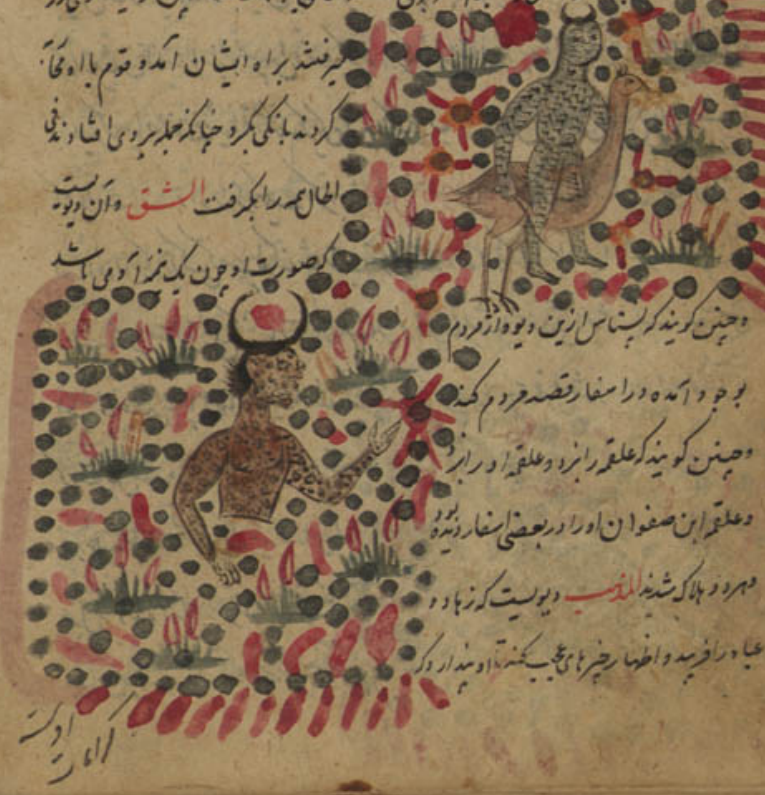 میرفتند براه ایشان آمد و قوم با او
کردند بانگی بکرد چنانکه جمله بروی افتادند فی
الحال همه را بکرفت الشق و آن دیویست
که صورت او چون یک نیمهٔ آدمی باشد
و چنین کویند که نسناس ازین دیو و از مردم
بوجود آمده و در اسفار قصد مردم کند
و چنین کویند که علقمه را بزد و علقمه او را بزد
و علقمه ابن صفوان او را در بعضی اسفار دیده بود
و هر دو هلاک شدند المذهب دیویست که زهاد و
عباد را فریبد و اظهار چیزهای عجیب کند تا او پندارد که
کرامات اوست